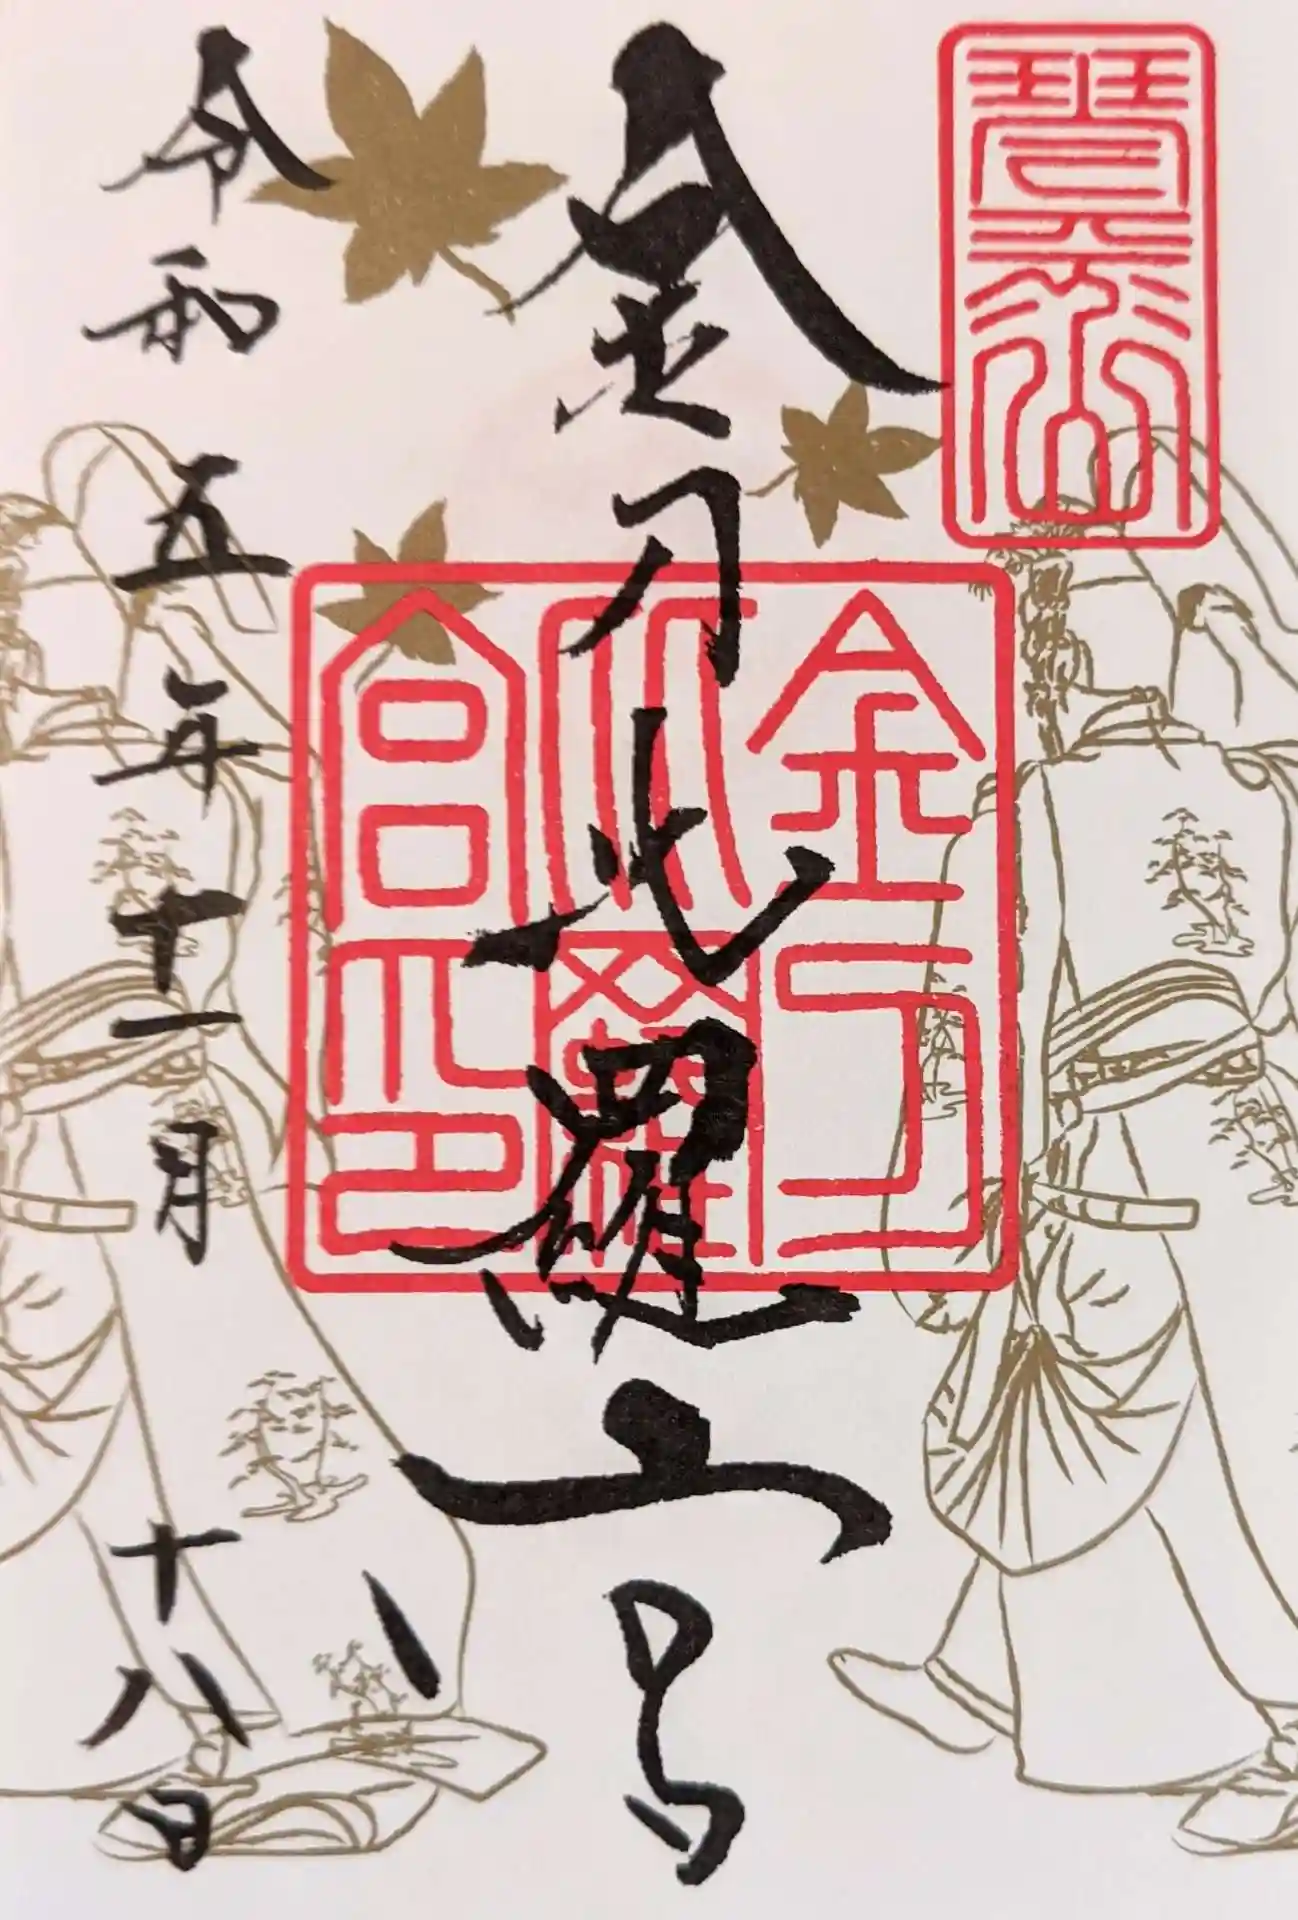 金刀比羅宮
金刀
比羅
宮印
令和五年十一月十八日